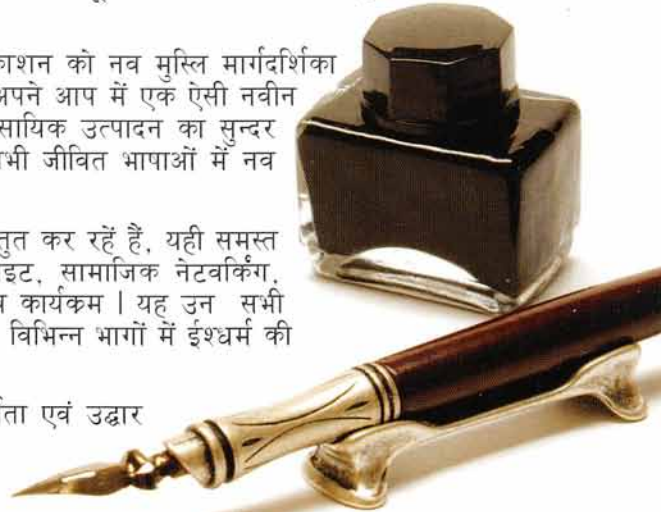 काशन को नव मुस्लि मार्गदर्शिका
अपने आप में एक ऐसी नवीन
सायिक उत्पादन का सुन्दर
भी जीवित भाषाओं में नव
तुत कर रहें हैं, यही समस्त
इट, सामाजिक नेटवर्किंग,
कार्यकम | यह उन सभी
विभिन्न भागों में ईश्धर्म की
ता एवं उद्धार